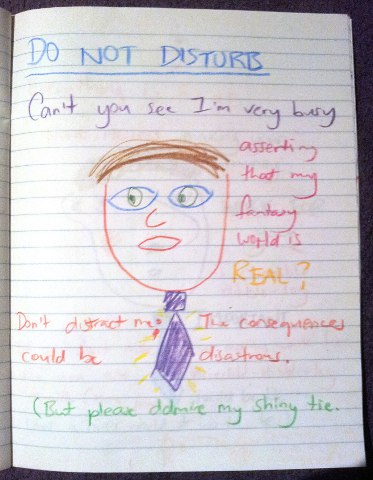 DO NOT DISTURB
Can't you see I'm very busy
asserting
that my
fantasy
world is
REAL?
Don't distract me! The consequences
could be disastrous.
(But please admire my shiny tie.